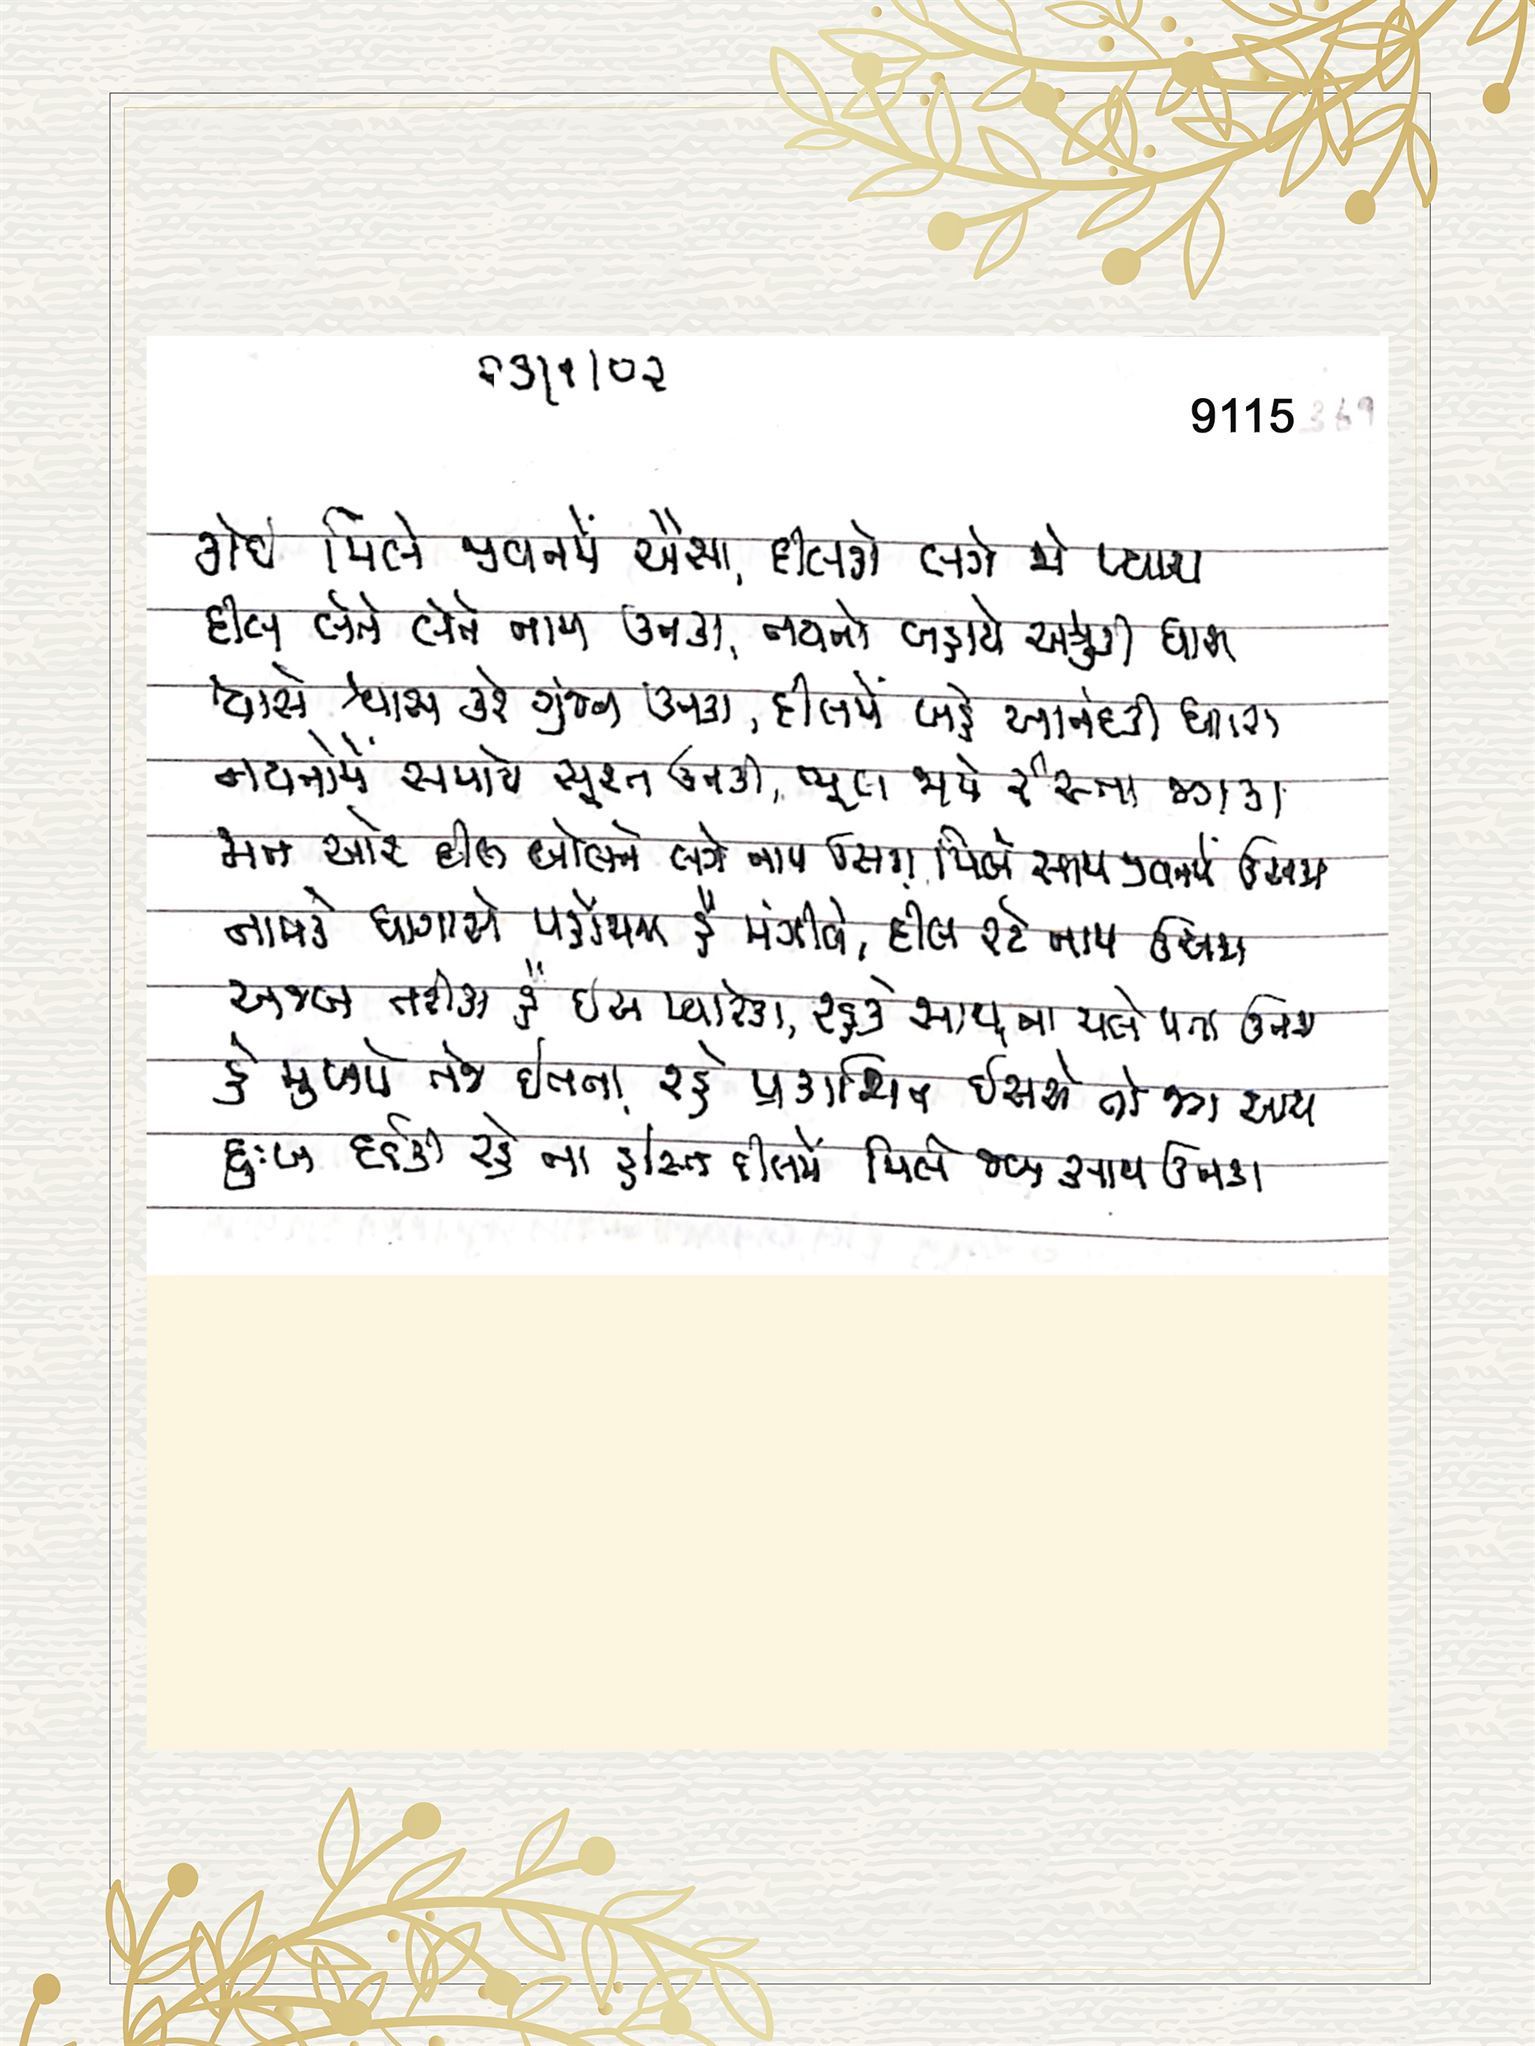 ૨૩/૧/૦૨
9115
369
કોઈ મિલે જીવનમેં ઐસા, દીલકો લગે જો પ્યારા
દીલ લેતે લેતે નામ ઉનકા, નયનો બહાયે અશ્રુકી ધારા
શ્વાસે શ્વાસ કરે ગુંજન ઉનકા, દીલમેં બહે આનંદકી ધારા
નયનોમેં સમાયે સૂરત ઉનકી, ભૂલ જાયે રીસ્તા જગકા
મન ઔર દીલ બોલને લગે નામ ઉસકા, મિલે સાથ જીવનમેં ઉસકા
નામકે ધાગાસે પહોંચના હૈ મંઝીલે, દીલ રટે નામ ઉસકા
અજબ તરીકા હૈ ઇસ પ્યારેકા, રહકે સાથ ના ચલે પતા ઉનકા
હે મુખપે તેજ ઇતના, રહે પ્રકાશિત ઈસસે તો જગ સારા
દુઃખ દર્દકી રહે ના હસ્તિ દીલમેં મિલે જબ સાથ ઉનકા